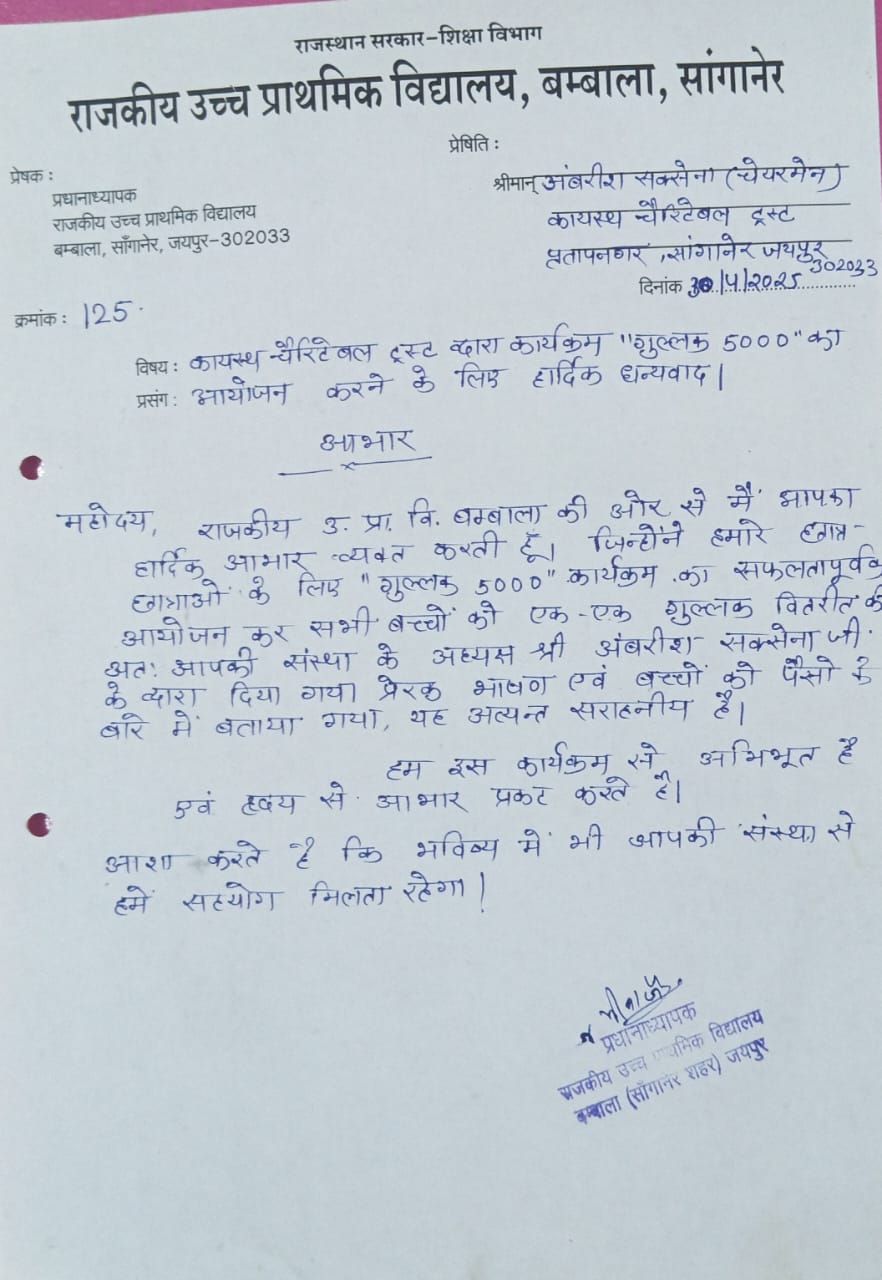 राजस्थान सरकार-शिक्षा विभाग
राजकीय उच्च प्राथमिक विद्यालय, बम्बाला, सांगानेर
प्रेषिति :
प्रेषक :
प्रधानाध्यापक
राजकीय उच्च प्राथमिक विद्यालय
बम्बाला, साँगानेर, जयपुर-302033
श्रीमान् अंबरीश सक्सेना (चेयरमेन)
कायस्थ चैरिटेबल ट्रस्ट
प्रतापनगर, सांगानेर जयपुर
302033
दिनांक 30/4/2025
क्रमांक : 125.
विषय : कायस्थ चैरिटेबल ट्रस्ट द्वारा कार्यक्रम "गुल्लक 5000" का
प्रसंग : आयोजन करने के लिए हार्दिक धन्यवाद।
आभार
महोदय, राजकीय उ. प्रा. वि. बम्बाला की ओर से मैं आपका
हार्दिक आभार व्यक्त करती हूँ। जिन्होंने हमारे छात्र-
छात्राओं के लिए "गुल्लक 5000" कार्यक्रम का सफलतापूर्वक
आयोजन कर सभी बच्चों को एक-एक गुल्लक वितरीत की
अतः आपकी संस्था के अध्यक्ष श्री अंबरीश सक्सेना जी
के द्वारा दिया गया प्रेरक भाषण एवं बच्चों को पैसो के
बारे में बताया गया, यह अत्यन्त सराहनीय है।
हम इस कार्यक्रम से अभिभूत है
एवं हृदय से आभार प्रकट करते है।
आशा करते है कि भविष्य में भी आपकी संस्था से
हमें सहयोग मिलता रहेगा।
प्रधानाध्यापक
राजकीय उच्च प्राथमिक विद्यालय
बम्बाला (साँगानेर शहर) जयपुर